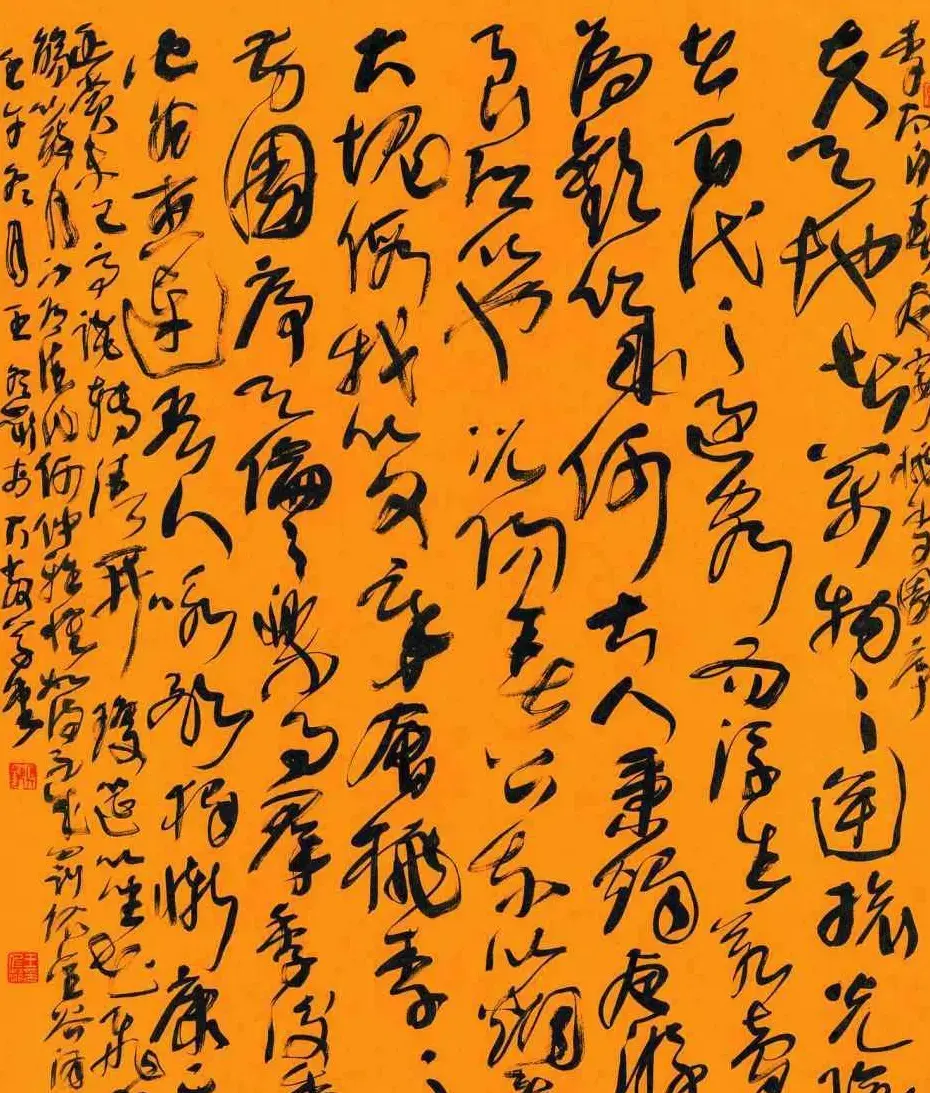 李太白春夜宴桃李園序
夫天地者萬物之逆旅光陰
者百代之過客而浮生若夢
為歡幾何古人秉燭夜遊
良有以也況陽春召我以煙景
大塊假我以文章會桃李之
芳園序天倫之樂事群季俊秀
吾人詠歌獨慚康樂
幽賞未已高談轉清開瓊筵以坐花飛
觴以醉月不有佳作何伸雅懷如詩不成罰依金谷酒
壬午冬月王冬齡